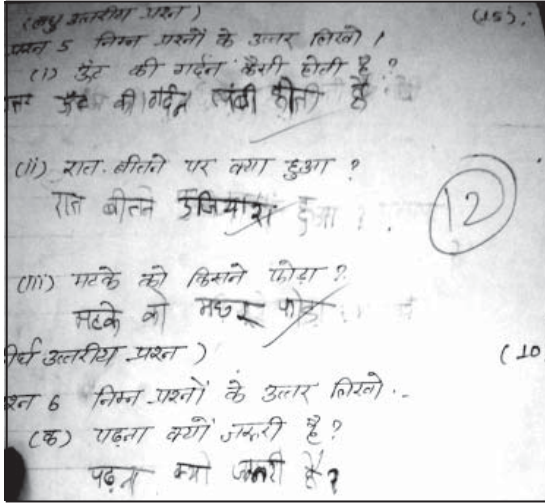 (लघु उत्तरीय प्रश्न) (15)
प्रश्न 5 निम्न प्रश्नों के उत्तर लिखो।
(i) ऊँट की गर्दन कैसी होती है ?
ऊँट की गर्दन लंबी होती है
(ii) रात बीतने पर क्या हुआ ?
रात बीतने उजियारा हुआ
12
(iii) मटके को किसने फोड़ा ?
मटके को मछर फोड़ा
र्घ उत्तरीय प्रश्न) (10
श्न 6 निम्न प्रश्नों के उत्तर लिखो.
(क) पढ़ना क्यों जरूरी है?
पढ़ना क्यों जरूरी है?